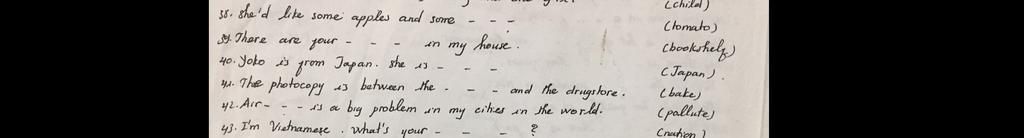 (child)
38. She'd like some apples and some - - - (tomato)
39. There are your - - - in my house. (bookshelf)
40. Yoko is from Japan. She is - - - (Japan).
41. The photocopy is between the - - - and the drugstore. (bake)
42. Air - - - is a big problem in my cities in the world. (pollute)
43. I'm Vietnamese. What's your - - - ? (nation)